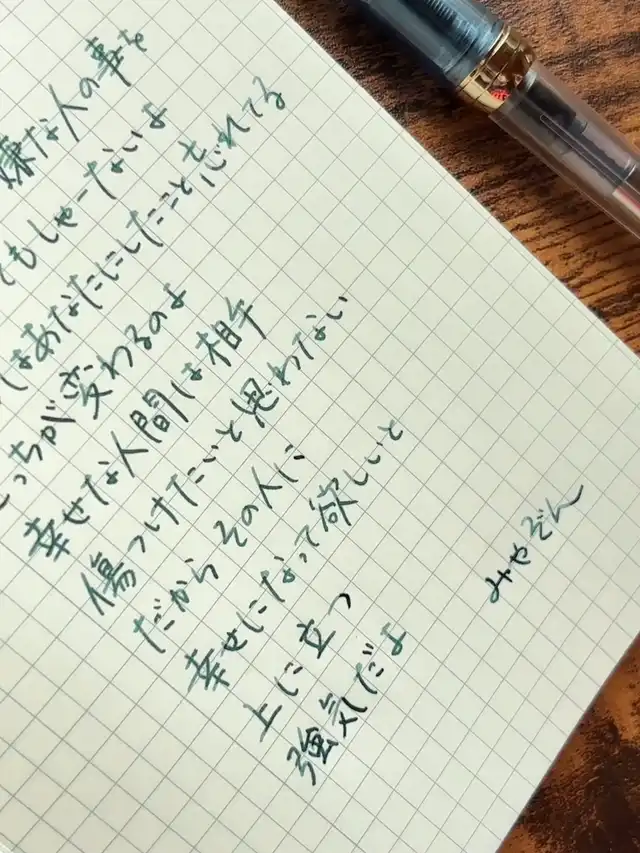 嫌な人の事を
てもしゃーないよ
はあなたにしたこと忘れてる
こっちが変わるのよ
幸せな人間は相手
傷つけたいと思わない
だから その人に
幸せになって欲しいと
上に立つ
強気だよ
みやぞん